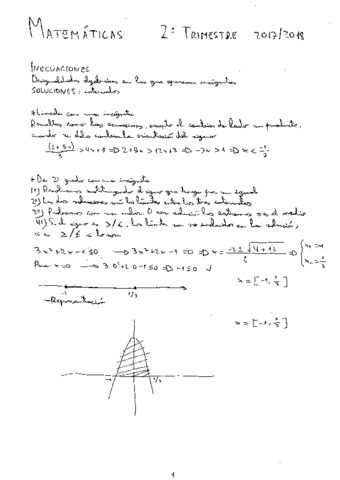 MATEMÁTICAS 2º TRIMESTRE 2017/2018
INECUACIONES
Desigualdades algebraicas en las que aparecen incógnitas
SOLUCIONES: intervalos
* Lineales con una incógnita
Resueltas como las ecuaciones, excepto el cambio de lado un producto,
cuando x debe cambiar la orientación del signo
(2+5x)/3 > 4x+1 => 2+5x > 12x+3 => -7x > 1 => x < -1/7
* De 2º grado con una incógnita
1º) Resolvemos sustituyendo el signo que tenga por un igual
2º) Las dos soluciones son los límites entre los tres intervalos
3º) Probamos con un valor. O son solución los extremos o es el medio
4º) Si el signo es >/<, los límites no se incluyen en la solución,
≥/≤ lo son
3x²+2x-1≤0 → 3x²+2x-1=0 => x = -2±√4+12 / 6 => x₁=-1 x₂=1/3
Para x=0 → 3·0²+2·0-1≤0 => -1≤0 ✓
x = [-1, 1/3]
-1 1/3
→ Representació
x = [-1, 1/3]
-1 1/3
1